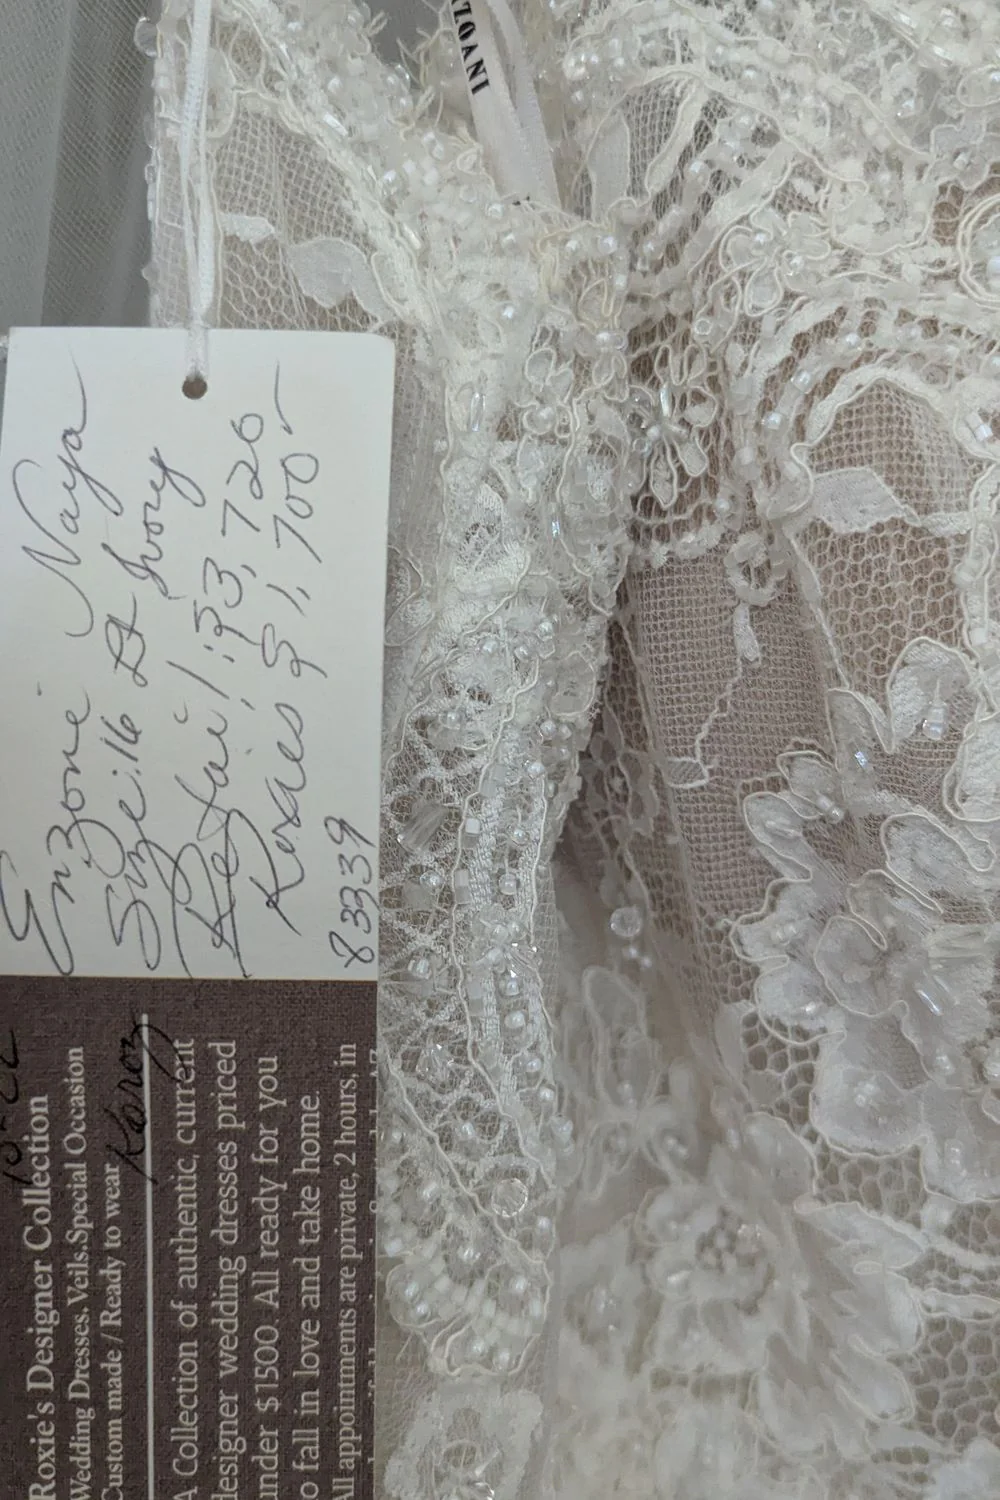 ZOVANI
Enzoni Naya
Size: 16 Lt Ivory
Retail: $3,720
Roxies $1,700
83339
Roxie's Designer Collection
Wedding Dresses. Veils. Special Occasion
Custom made / Ready to wear
Karez
A Collection of authentic, current
designer wedding dresses priced
under $1500. All ready for you
to fall in love and take home.
All appointments are private, 2 hours, in